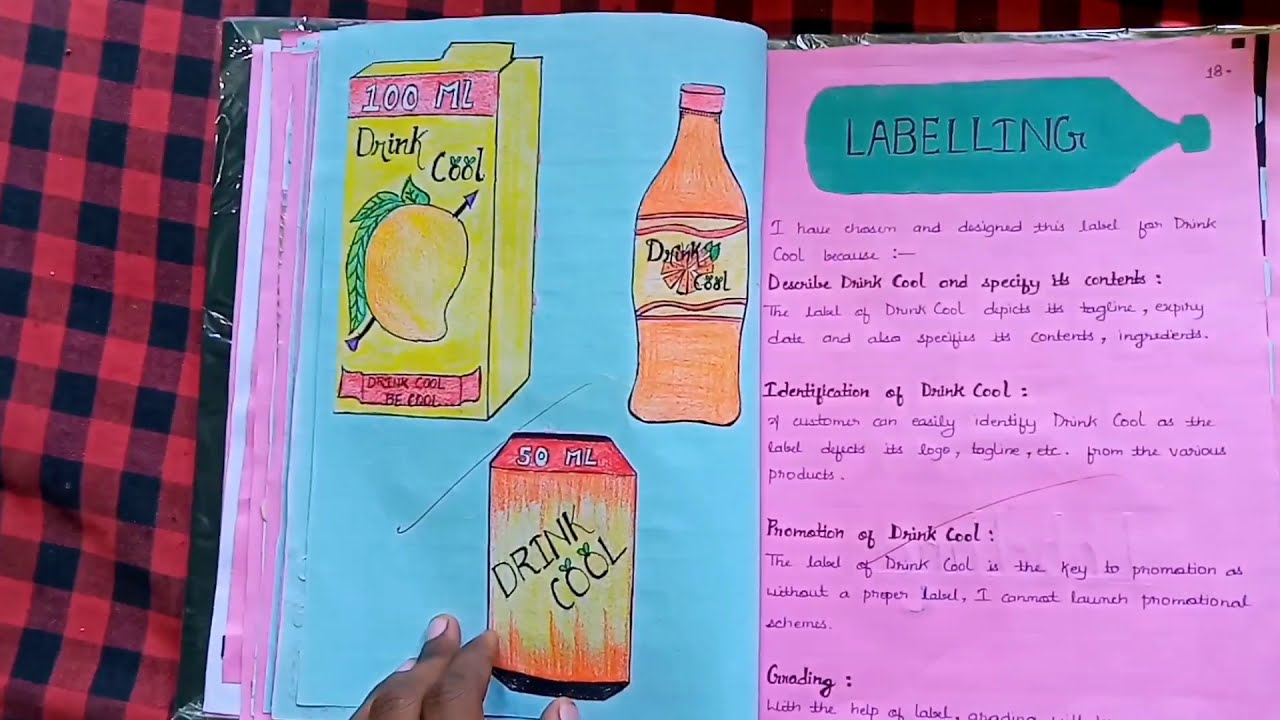 100 ML
Drink
Cool
DRINK COOL
BE COOL
Drink
Cool
50 ML
DRINK
COOL
18-
LABELLING
I have chosen and designed this label for Drink
Cool because :—
Describe Drink Cool and specify its contents :
The label of Drink Cool depicts its tagline, expiry
date and also specifies its contents, ingredients.
Identification of Drink Cool :
A customer can easily identify Drink Cool as the
label depicts its logo, tagline, etc. from the various
products.
Promotion of Drink Cool :
The label of Drink Cool is the key to promotion as
without a proper label, I cannot launch promotional
schemes.
Grading :
With the help of label, grading